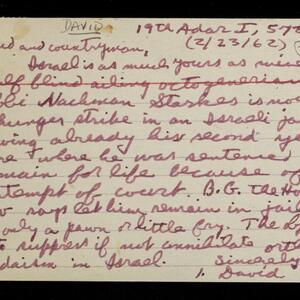 DAVID 19th Adar I, 572
and countryman, (2/23/62) (
Israel is as much yours as mine
lf blind ailing octogenerian
bbi Nachman Starkes is no
hunger strike in an Israeli ja
ving already his second ye
re where he was sentenced
emain for life because of
tempt of court. B.G. the H
w says let him remain in jail
only a pawn or little fry. The
to suppress if not annihilate orth
daism in Israel. Sincerely
David